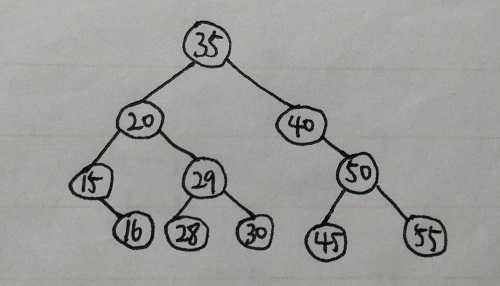 35
20 40
15 29 50
16 28 30 45 55